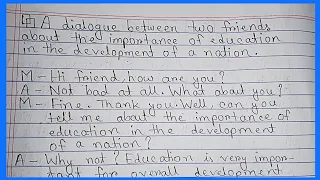 A dialogue between two friends
about the importance of education
in the development of a nation.
M - Hi friend, how are you?
A - Not bad at all. What about you?
M - Fine. Thank you. Well, can you
tell me about the importance of
education in the development
of a nation?
A - Why not? Education is very impor-
tant for overall development